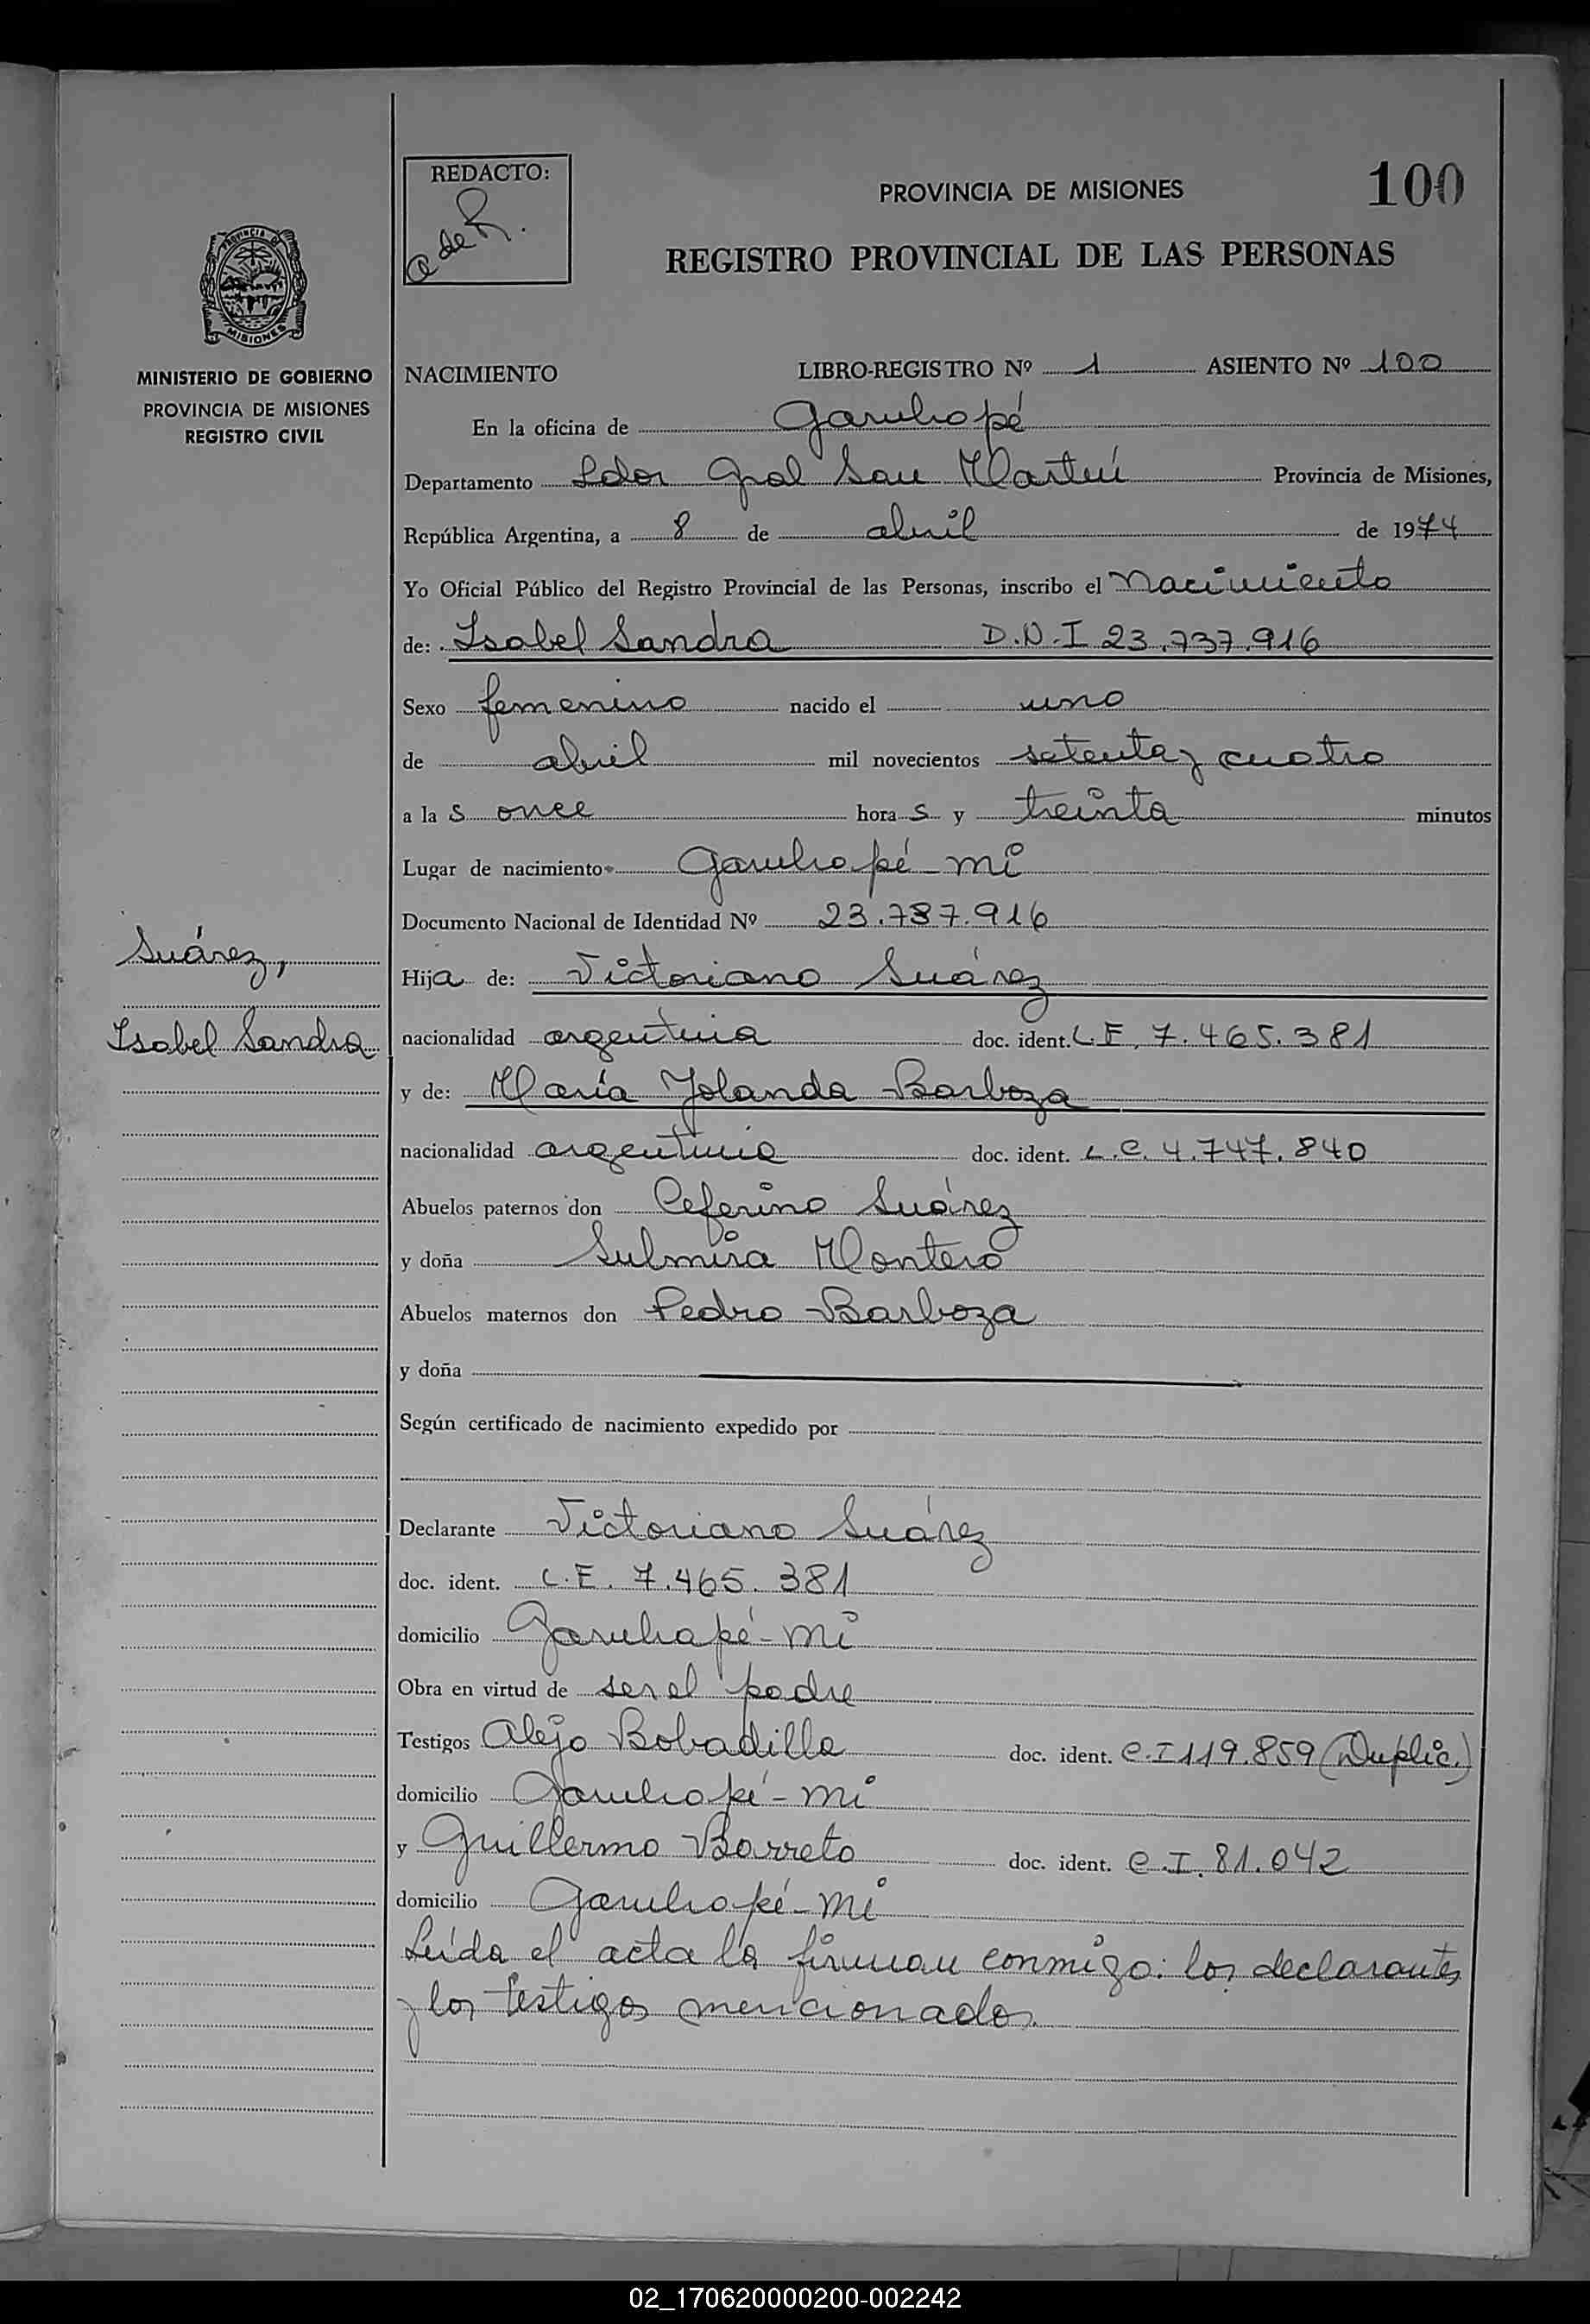 REDACTO:
a de R.
PROVINCIA DE MISIONES
100
REGISTRO PROVINCIAL DE LAS PERSONAS
PROVINCIA DE
MISIONES
MINISTERIO DE GOBIERNO
PROVINCIA DE MISIONES
REGISTRO CIVIL
NACIMIENTO LIBRO-REGISTRO Nº 1 ASIENTO Nº 100
En la oficina de Garuhapé
Departamento Ldor Gral San Martín Provincia de Misiones,
República Argentina, a 8 de abril de 1974
Yo Oficial Público del Registro Provincial de las Personas, inscribo el Nacimiento
de: Isabel Sandra D.N.I 23.737.916
Sexo femenino nacido el uno
de abril mil novecientos setenta y cuatro
a las once horas y treinta minutos
Lugar de nacimiento Garuhapé-mí
Documento Nacional de Identidad Nº 23.787.916
Suárez,
Isabel Sandra
Hija de: Victoriano Suárez
nacionalidad argentina doc. ident. L.E. 7.465.381
y de: María Yolanda Barboza
nacionalidad argentina doc. ident. L.C. 4.747.840
Abuelos paternos don Ceferino Suárez
y doña Sulmira Montero
Abuelos maternos don Pedro Barboza
y doña
Según certificado de nacimiento expedido por
Declarante Victoriano Suárez
doc. ident. L.E. 7.465.381
domicilio Garuhapé-mí
Obra en virtud de ser el padre
Testigos Alejo Bobadilla doc. ident. C.I 119.859 (Duplic.)
domicilio Garuhapé-mí
y Guillermo Barreto doc. ident. C.I. 81.042
domicilio Garuhapé-mí
Leída el acta la firman conmigo: los declarantes
y los testigos mencionados.
02_170620000200-002242